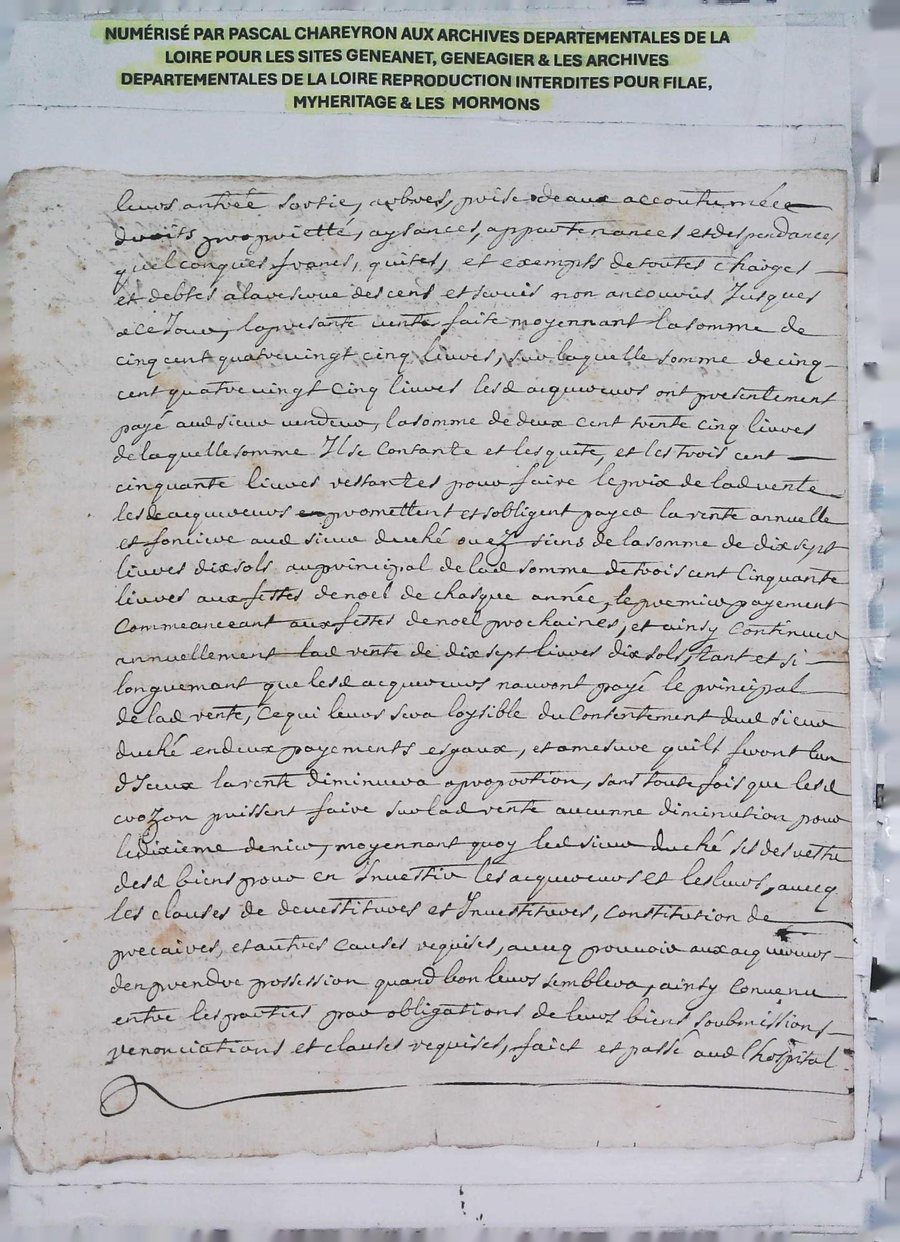 NUMÉRISÉ PAR PASCAL CHAREYRON AUX ARCHIVES DEPARTEMENTALES DE LA
LOIRE POUR LES SITES GENEANET, GENEAGIER & LES ARCHIVES
DEPARTEMENTALES DE LA LOIRE REPRODUCTION INTERDITES POUR FILAE,
MYHERITAGE & LES MORMONS
leurs antrée sortie, arbres, prise deaux accoutumée
droits proprietté, aysances, appartenances et despendances
quelconques francs, quites, et exempts de toutes charges
et debtes alareserve des cens et servis non ancourus Jusques
a ce Jour, la presante vente faite moyennant la somme de
cinq cent quatrevingt cinq livres, sur laquelle somme de cinq
cent quatrevingt cinq livres lesd acquereurs ont presentement
payé aud sieur vendeur, la somme de deux cent trente cinq livres
de laquelle somme Il se contante et les quite, et les trois cent
cinquante livres restantes pour faire le prix de lad vente
lesd acquereurs promettent et sobligent payer la rente annuelle
et fonciere aud sieur duché ou ez siens de la somme de dix sept
livres dix sols au principal de lad somme de trois cent Cinquante
livres aux fettes de noel de chasque année, le premier payement
Commeanceant aux fettes de noel prochaines, et ainsy Continuer
annuellement lad rente de dix sept livres dix sols, tant et si
longuemant que lesd acquereurs nauront payé le principal
de lad rente, Ce qui leurs sera loysible du Consentement dud sieur
duché en deux payements esgaux, et amesure quils feront lun
dIceux la rente diminuera a proportion, sans toute fois que lesd
crozon puissent faire sur lad rente aucunne diminution pour
le dixieme denier, moyennant quoy led sieur duché ses desvestu
desd biens pour en Investir les acquereurs et les leurs, avecq
les clauses de devestitures et Investitures, Constitution de
precaires, et autres Causes requises, avecq pouvoir aux acquereurs
den prendre possession quand bon leurs semblera, ainsy Convenu
entre les parties par obligations de leurs biens soubmissions
renonciations et clauses requises, faict et passé aud lhospital